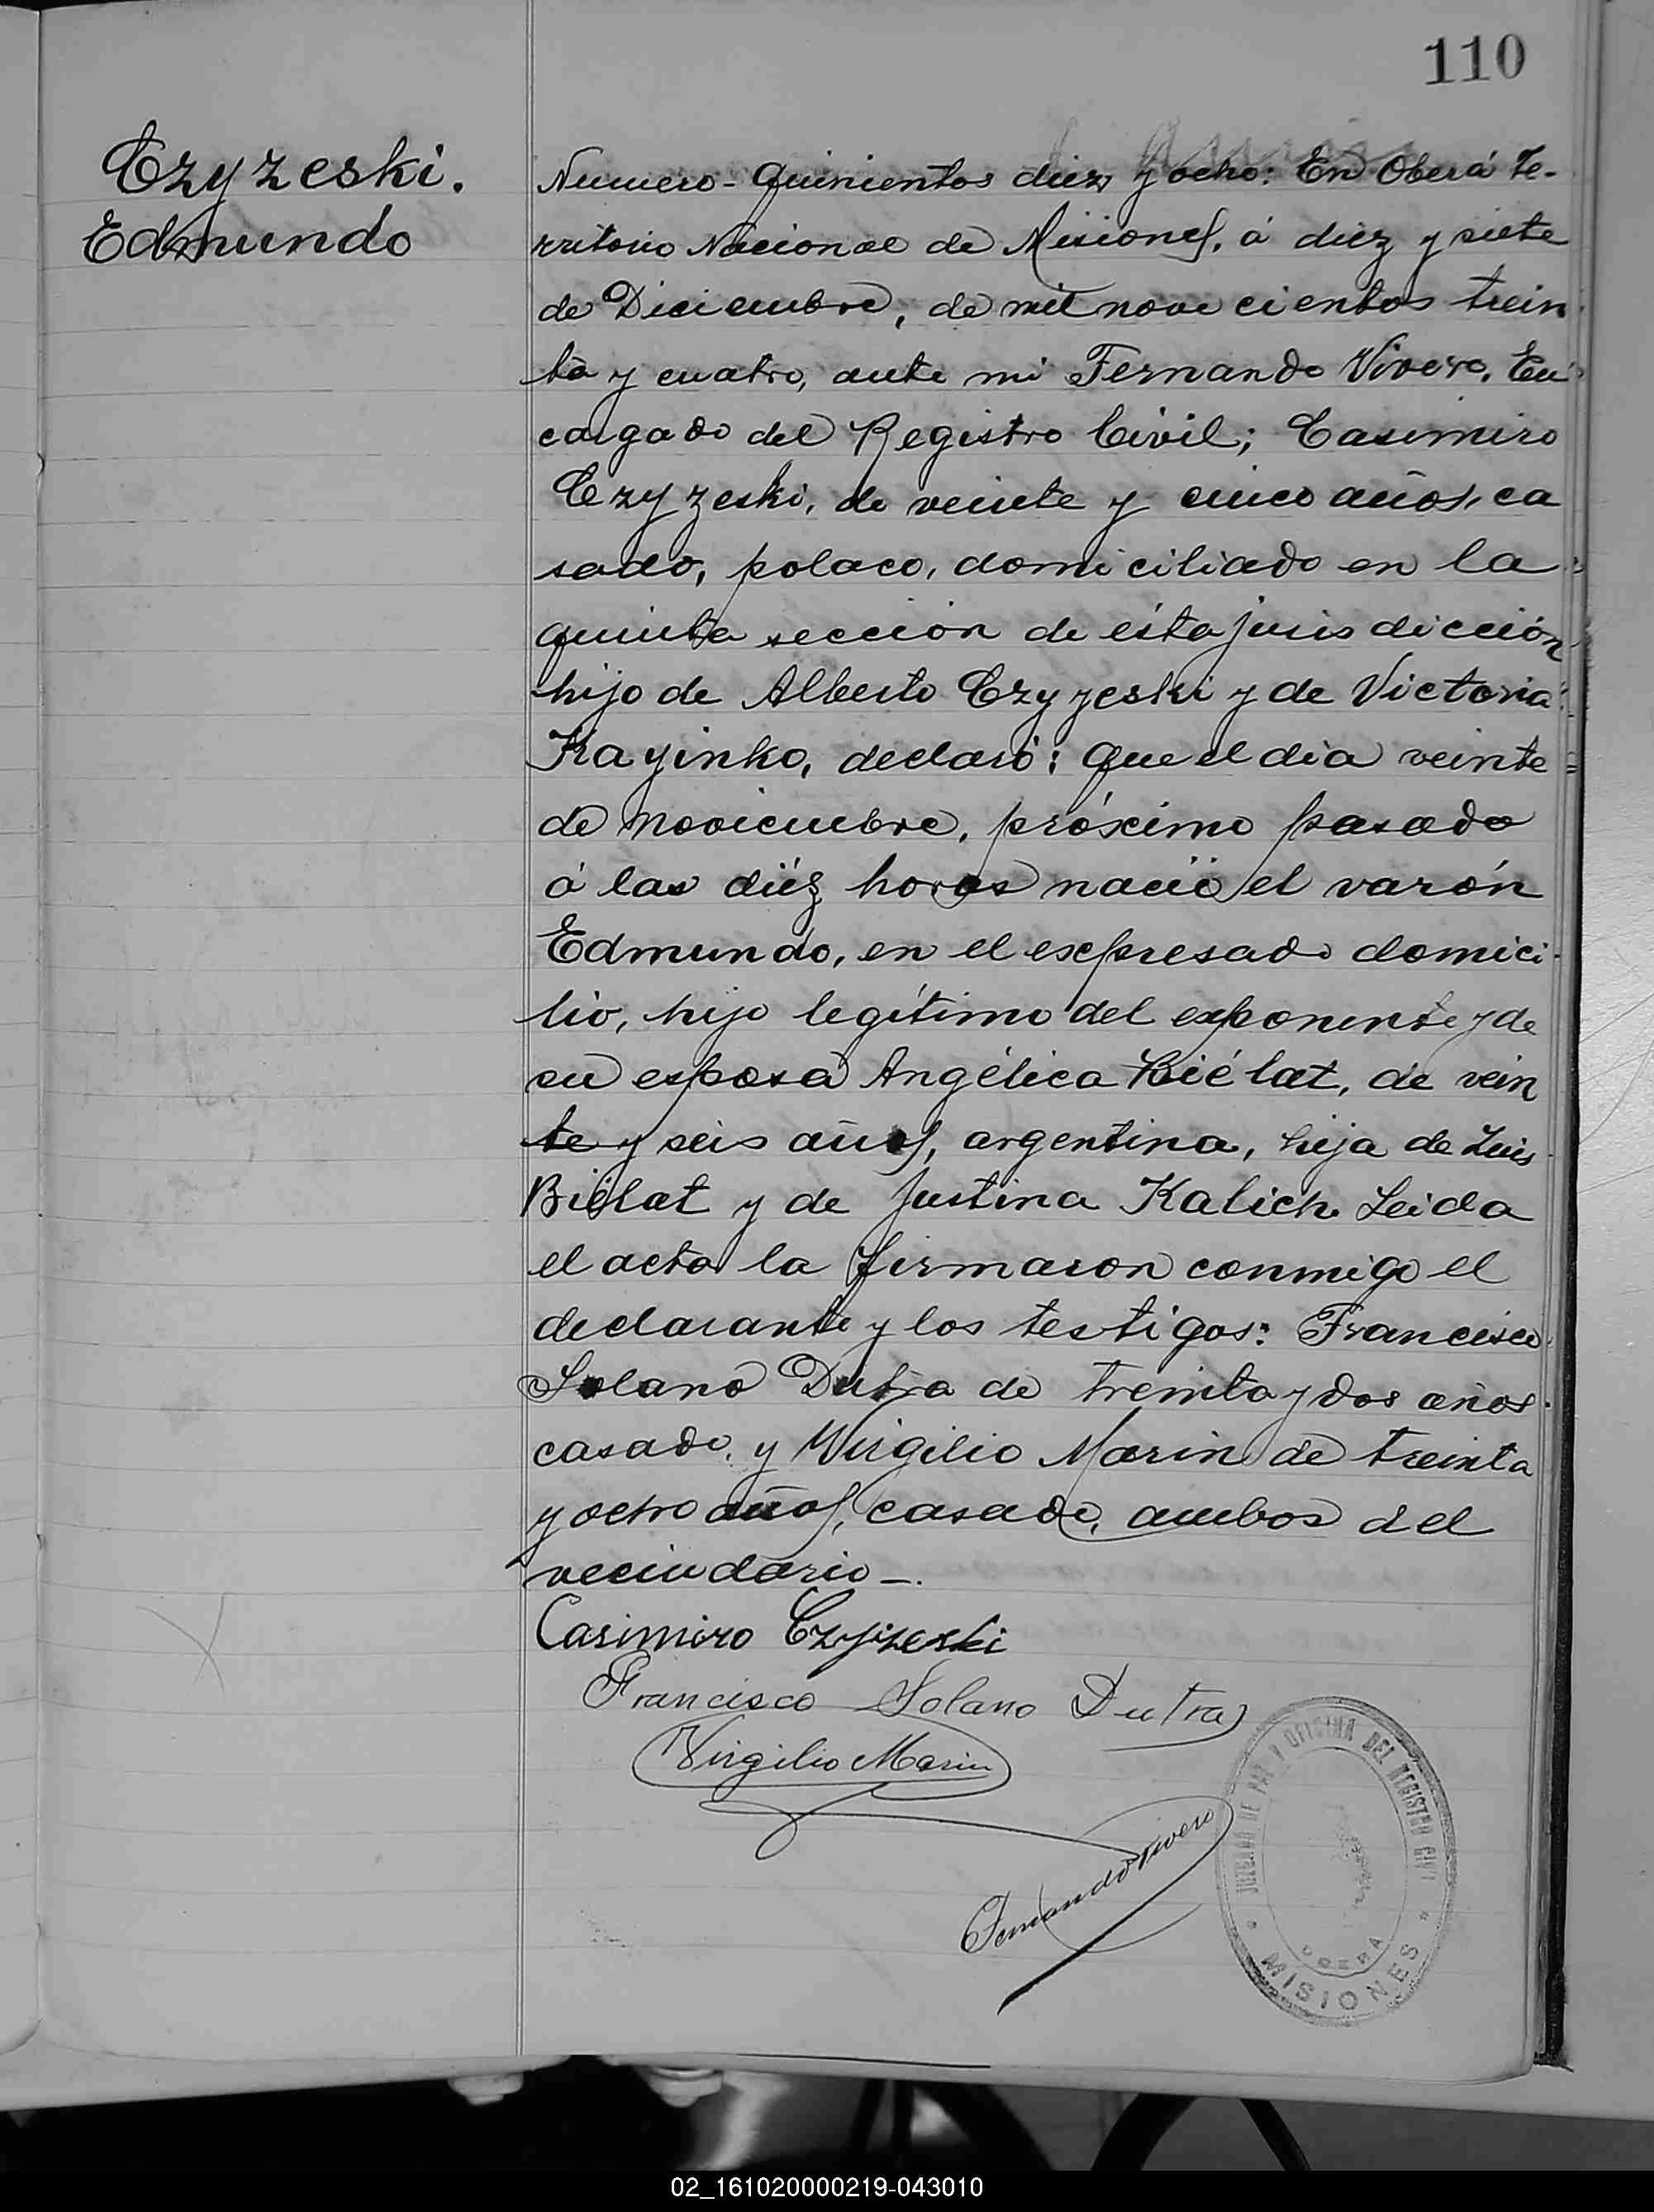 110
Czyzeski.
Edmundo
Numero - Quinientos diez y ocho: En Oberá Te-
rritorio Nacional de Misiones, á diez y siete
de Diciembre, de mil novecientos trein
ta y cuatro, ante mi Fernando Vivero, En
cargado del Registro Civil; Casimiro
Czyzeski, de veinte y cinco años, ca
sado, polaco, domiciliado en la
quinta sección de ésta jurisdicción
hijo de Alberto Czyzeski y de Victoria
Kayinko, declaró: Que el dia veinte
de Noviembre, próximo pasado
á las diéz horas nació el varón
Edmundo, en el expresado domici-
lio, hijo legítimo del exponente y de
su esposa Angélica Biélat, de vein
te y seis años, argentina, hija de Luis
Biélat y de Justina Kalich. Leida
el acta la firmaron conmigo el
declarante y los testigos: Francisco
Solano Dutra de treinta y dos años
casado, y Virgilio Marin de treinta
y ocho años, casado, ambos del
vecindario -.
Casimiro Czyzeski
Francisco Solano Dutra
Virgilio Marin
Fernando Vivero
JUZGADO DE PAZ Y OFICINA DEL REGISTRO CIVIL
OBERA
MISIONES
02_161020000219-043010